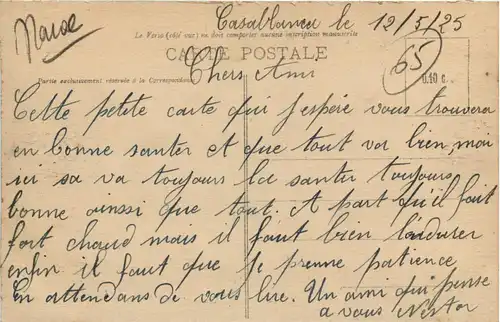 Maroc
Casablanca le 12/5/25
Le Verso (côté vue) ne doit comporter aucune inscription manuscrite
CARTE POSTALE
65
0.40 c.
Partie exclusivement réservée à la Correspondance
Chers Ami
Cette petite carte qui j'espére vous trouvera
en bonne santer et que tout va bien, moi
ici sa va toujours la santer toujours
bonne ainsi que tout. A part qu'il fait
fort chaud mais il faut bien l'endurer
enfin il faut que je prenne patience
En attendans de vous lire. Un ami qui pense
a vous Nestor